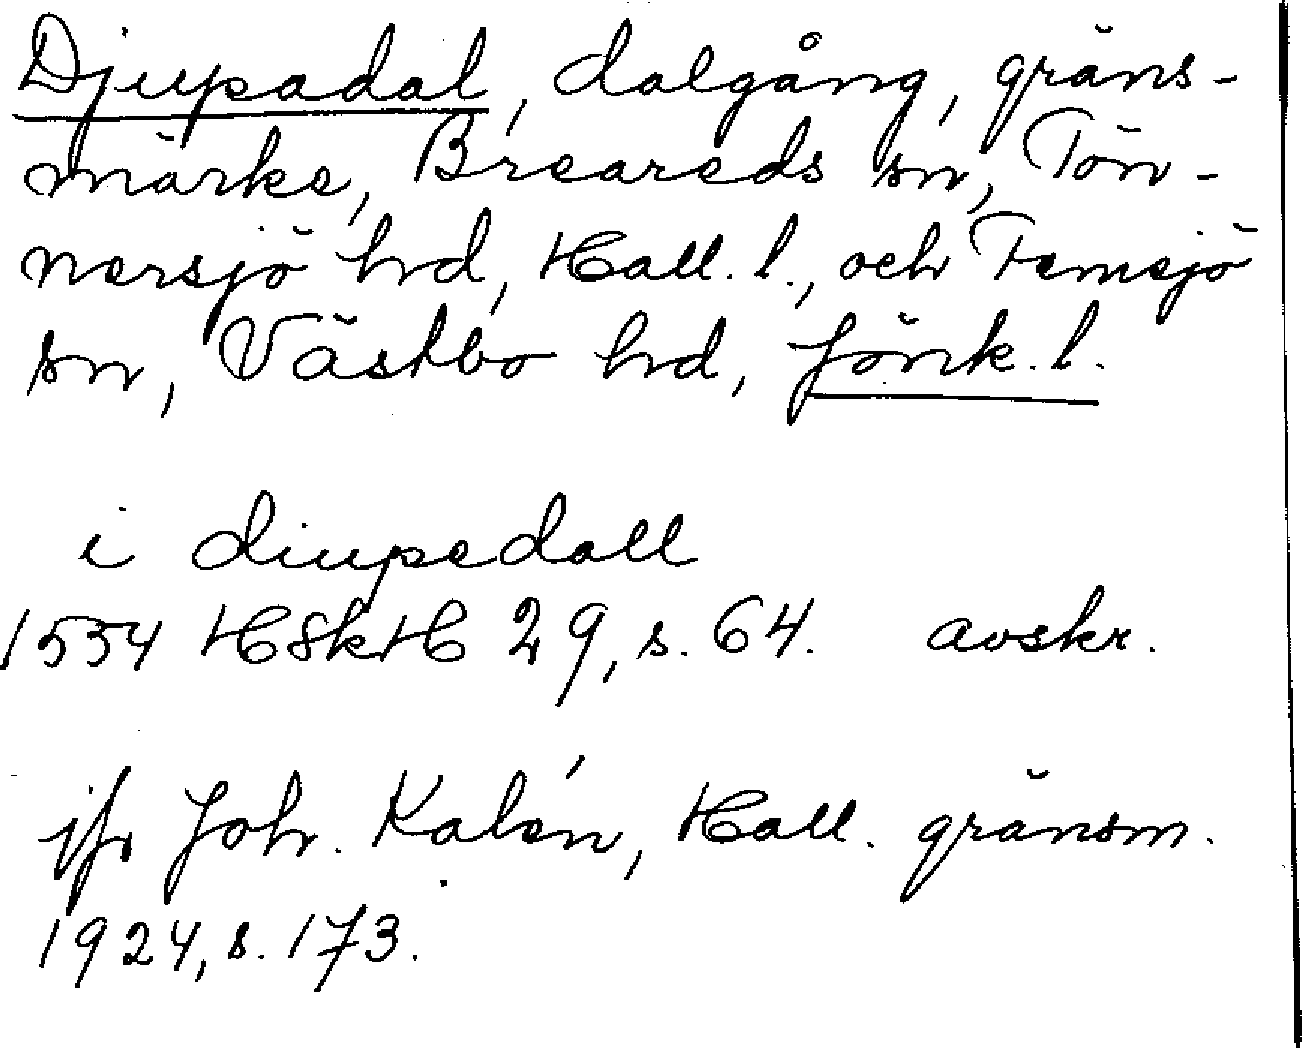 Djupadal, dalgång, gräns-
märke, Breareds sn, Tön-
nersjö hrd, Hall. l., och Femsjö
sn, Västbo hrd, Jönk. l.
i diupedall
1554 HSkH 29, s. 64. avskr.
jfr Joh. Kalén, Hall. gränsm.
1924, s. 173.